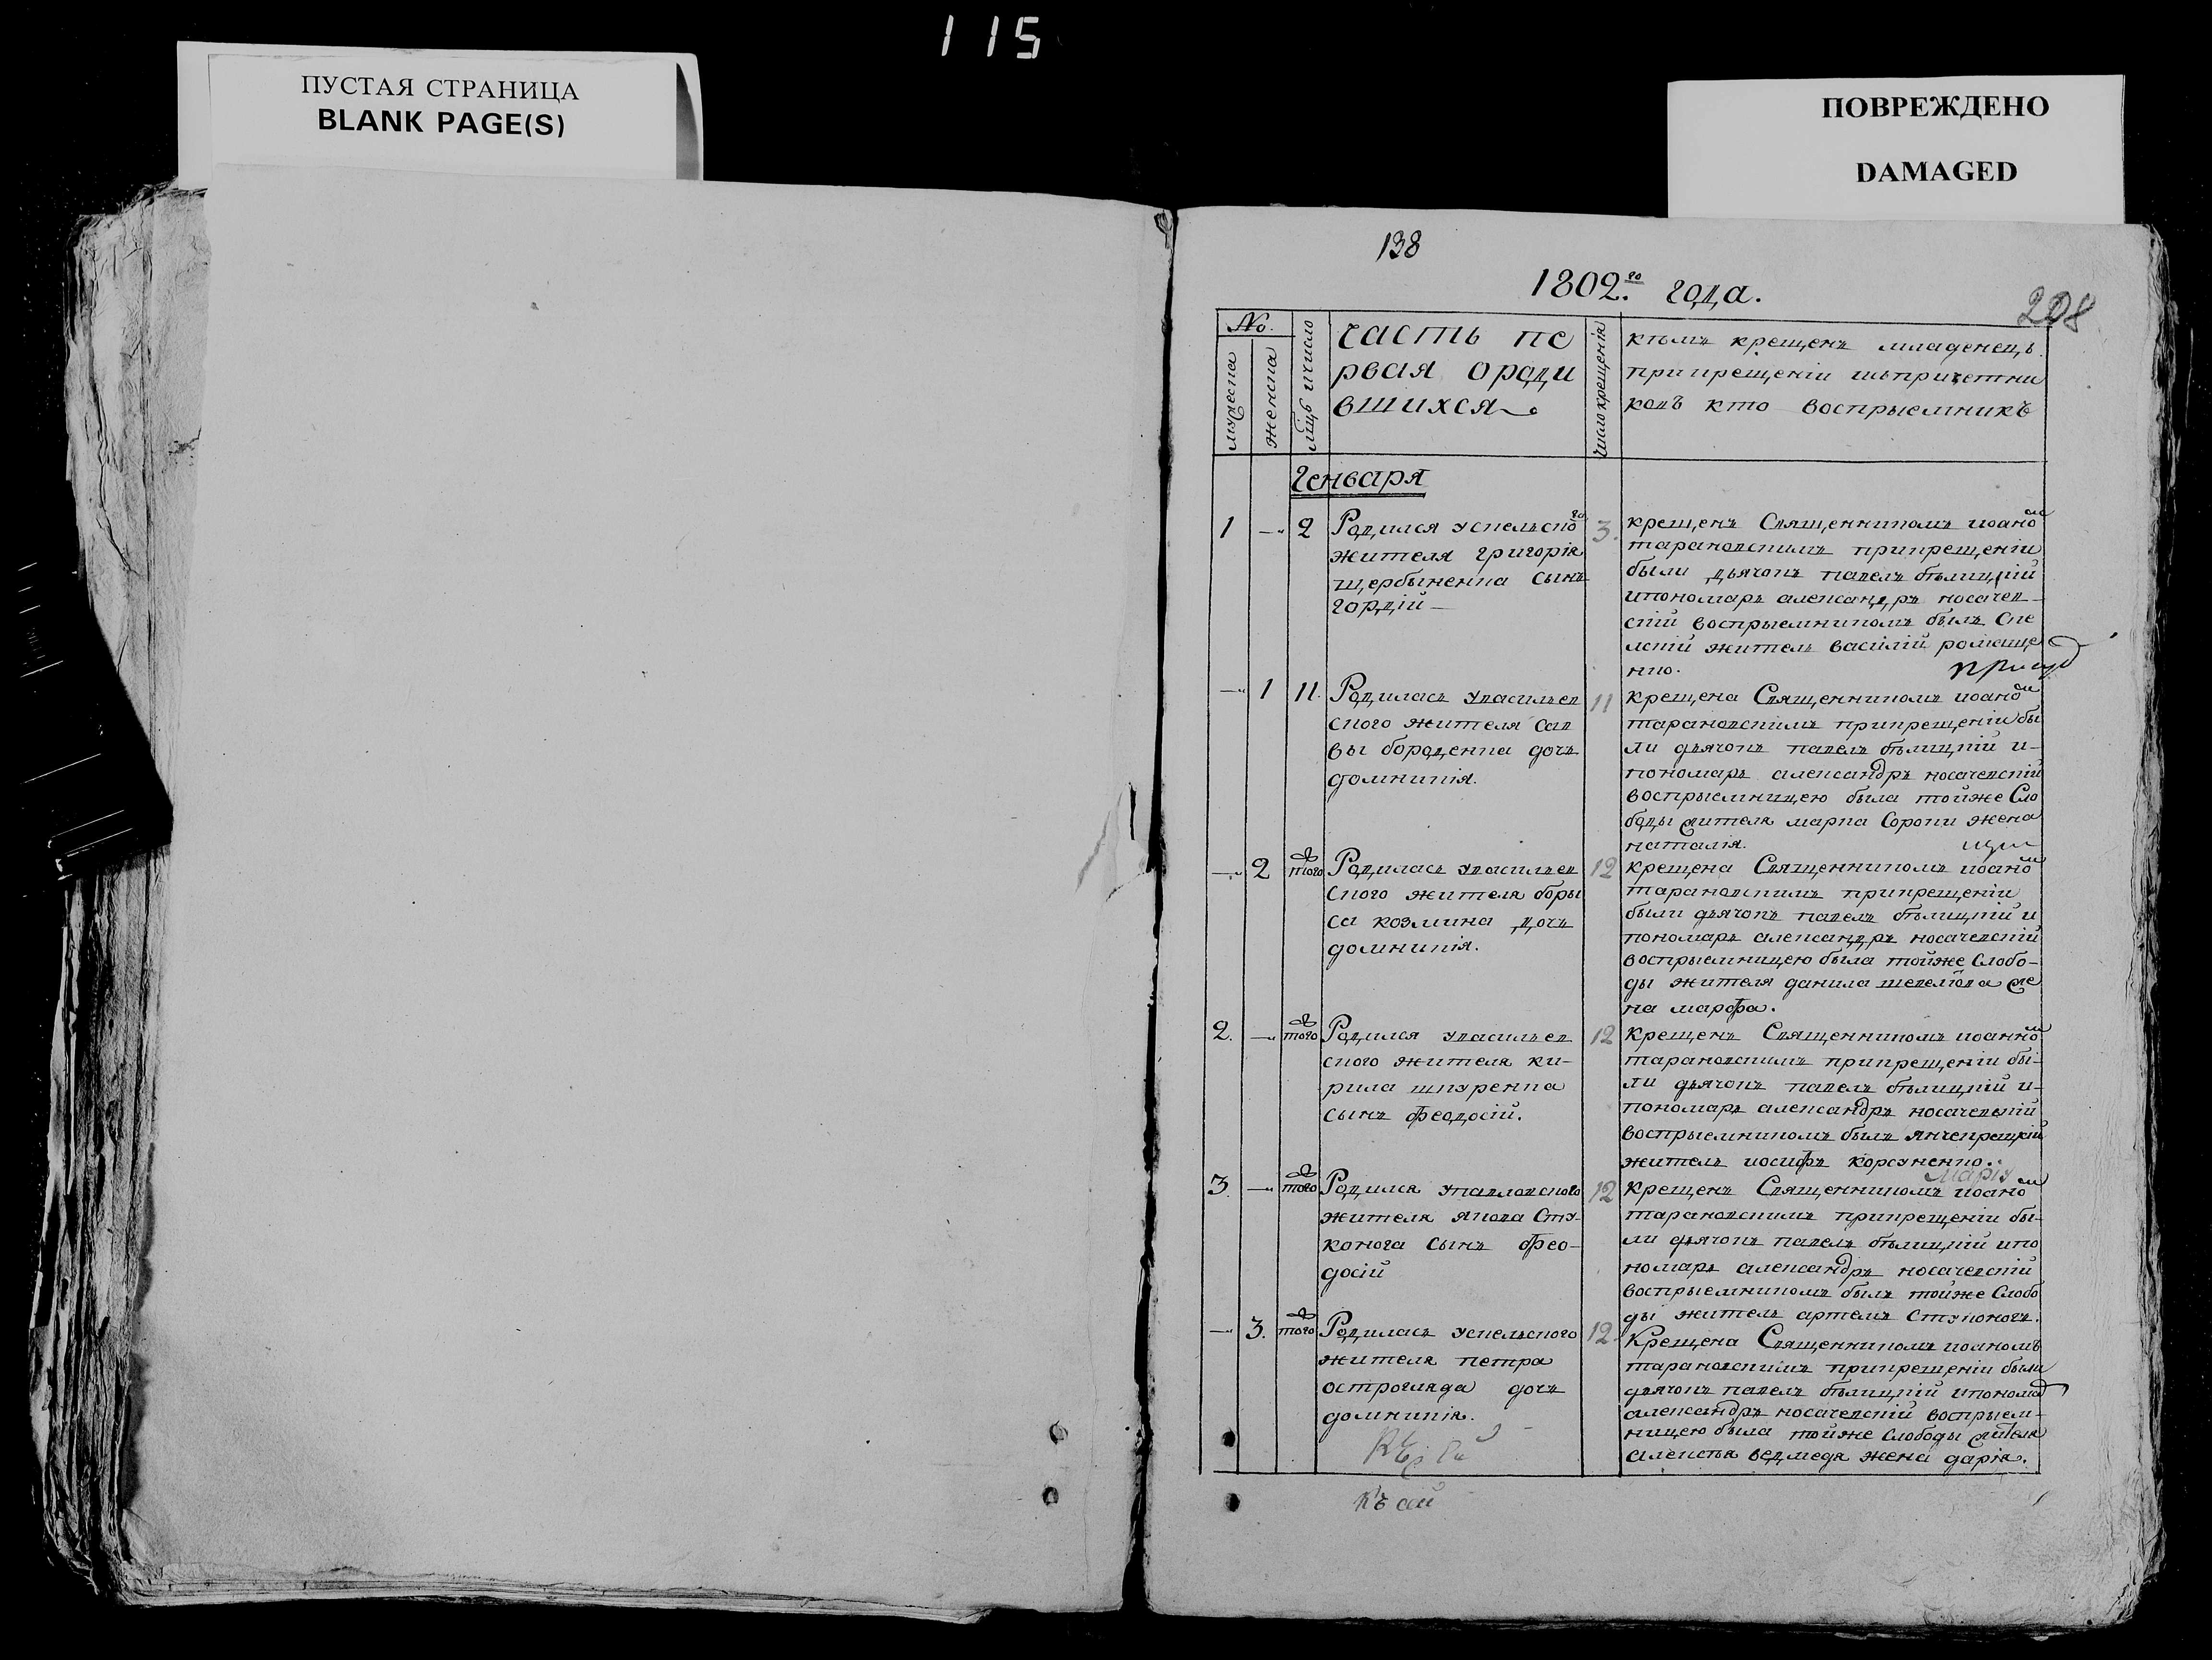 115
ПУСТАЯ СТРАНИЦА
BLANK PAGE(S)
ПОВРЕЖДЕНО
DAMAGED
138
1802.го года.
208
№.
мужеска
женска
мцъ ичисло
часть пе
рвая ороди
вшихся
число крещенія
кѣмъ крещенъ младенецъ
прикрещеніи изъпричетни
ковъ кто воспрыемникъ
Генваря
1 — 2
Родился ускельско го
жителя григорія
щербыненка сынъ
гордій —
3.
крещенъ Священникомъ иоано мъ
тарановскимъ прикрещеніи
были дьячокъ павелъ бѣлицкій
ипономарь александръ носачев-
скій воспрыемникомъ былъ Ске
лскій житель василій ромаще
нко.
— 1 11.
Родилась увасильев
ского жителя сав
вы бороденка дочь
домникія.
11
крещена Священникомъ иоано мъ
тарановскимъ прикрещеніи бы
ли дьячокъ павелъ бѣлицкій и-
пономарь александръ носачевскій
воспрыемницею была тойже Сло
боды жителя марка Сороки жена
наталія.
— 2 того
Родилась увасильев
ского жителя боры
са козмина дочь
домникія.
12
крещена Священникомъ иоано мъ
тарановскимъ прикрещеніи
были дьячокъ павелъ бѣлицкій и
пономарь александръ носачевскій
воспрыемницею была тойже Слобо-
ды жителя данила шевелюва же
на марфа.
2. — того
Родился увасильев
ского жителя ки-
рила шкуренка
сынъ феодосій.
12
крещенъ Священникомъ иоанно мъ
тарановскимъ прикрещеніи бы-
ли дьячокъ павелъ бѣлицкій и-
пономарь александръ носачевскій
воспрыемникомъ былъ янчекрацкій
житель иосифъ корсуненко.
3. — того
Родился упавловского
жителя якова Сту-
конога сынъ фео-
досій
12
крещенъ Священникомъ иоано мъ
тарановскимъ прикрещеніи бы-
ли дьячокъ павелъ бѣлицкій ипо
номарь александръ носачевскій
воспрыемникомъ былъ тойже Слобо
ды житель артемъ Стуконогъ.
— 3. того
Родилась ускельского
жителя петра
острогляда дочь
домникія.
12
Крещена Священникомъ иоаномъ
тарановскимъ прикрещеніи были
дьячокъ павелъ бѣлицкій ипономар
александръ носачевскій воспрыем-
ницею была тойже слободы жителя
алексѣя ведмедя жена дарія.
Къ сей